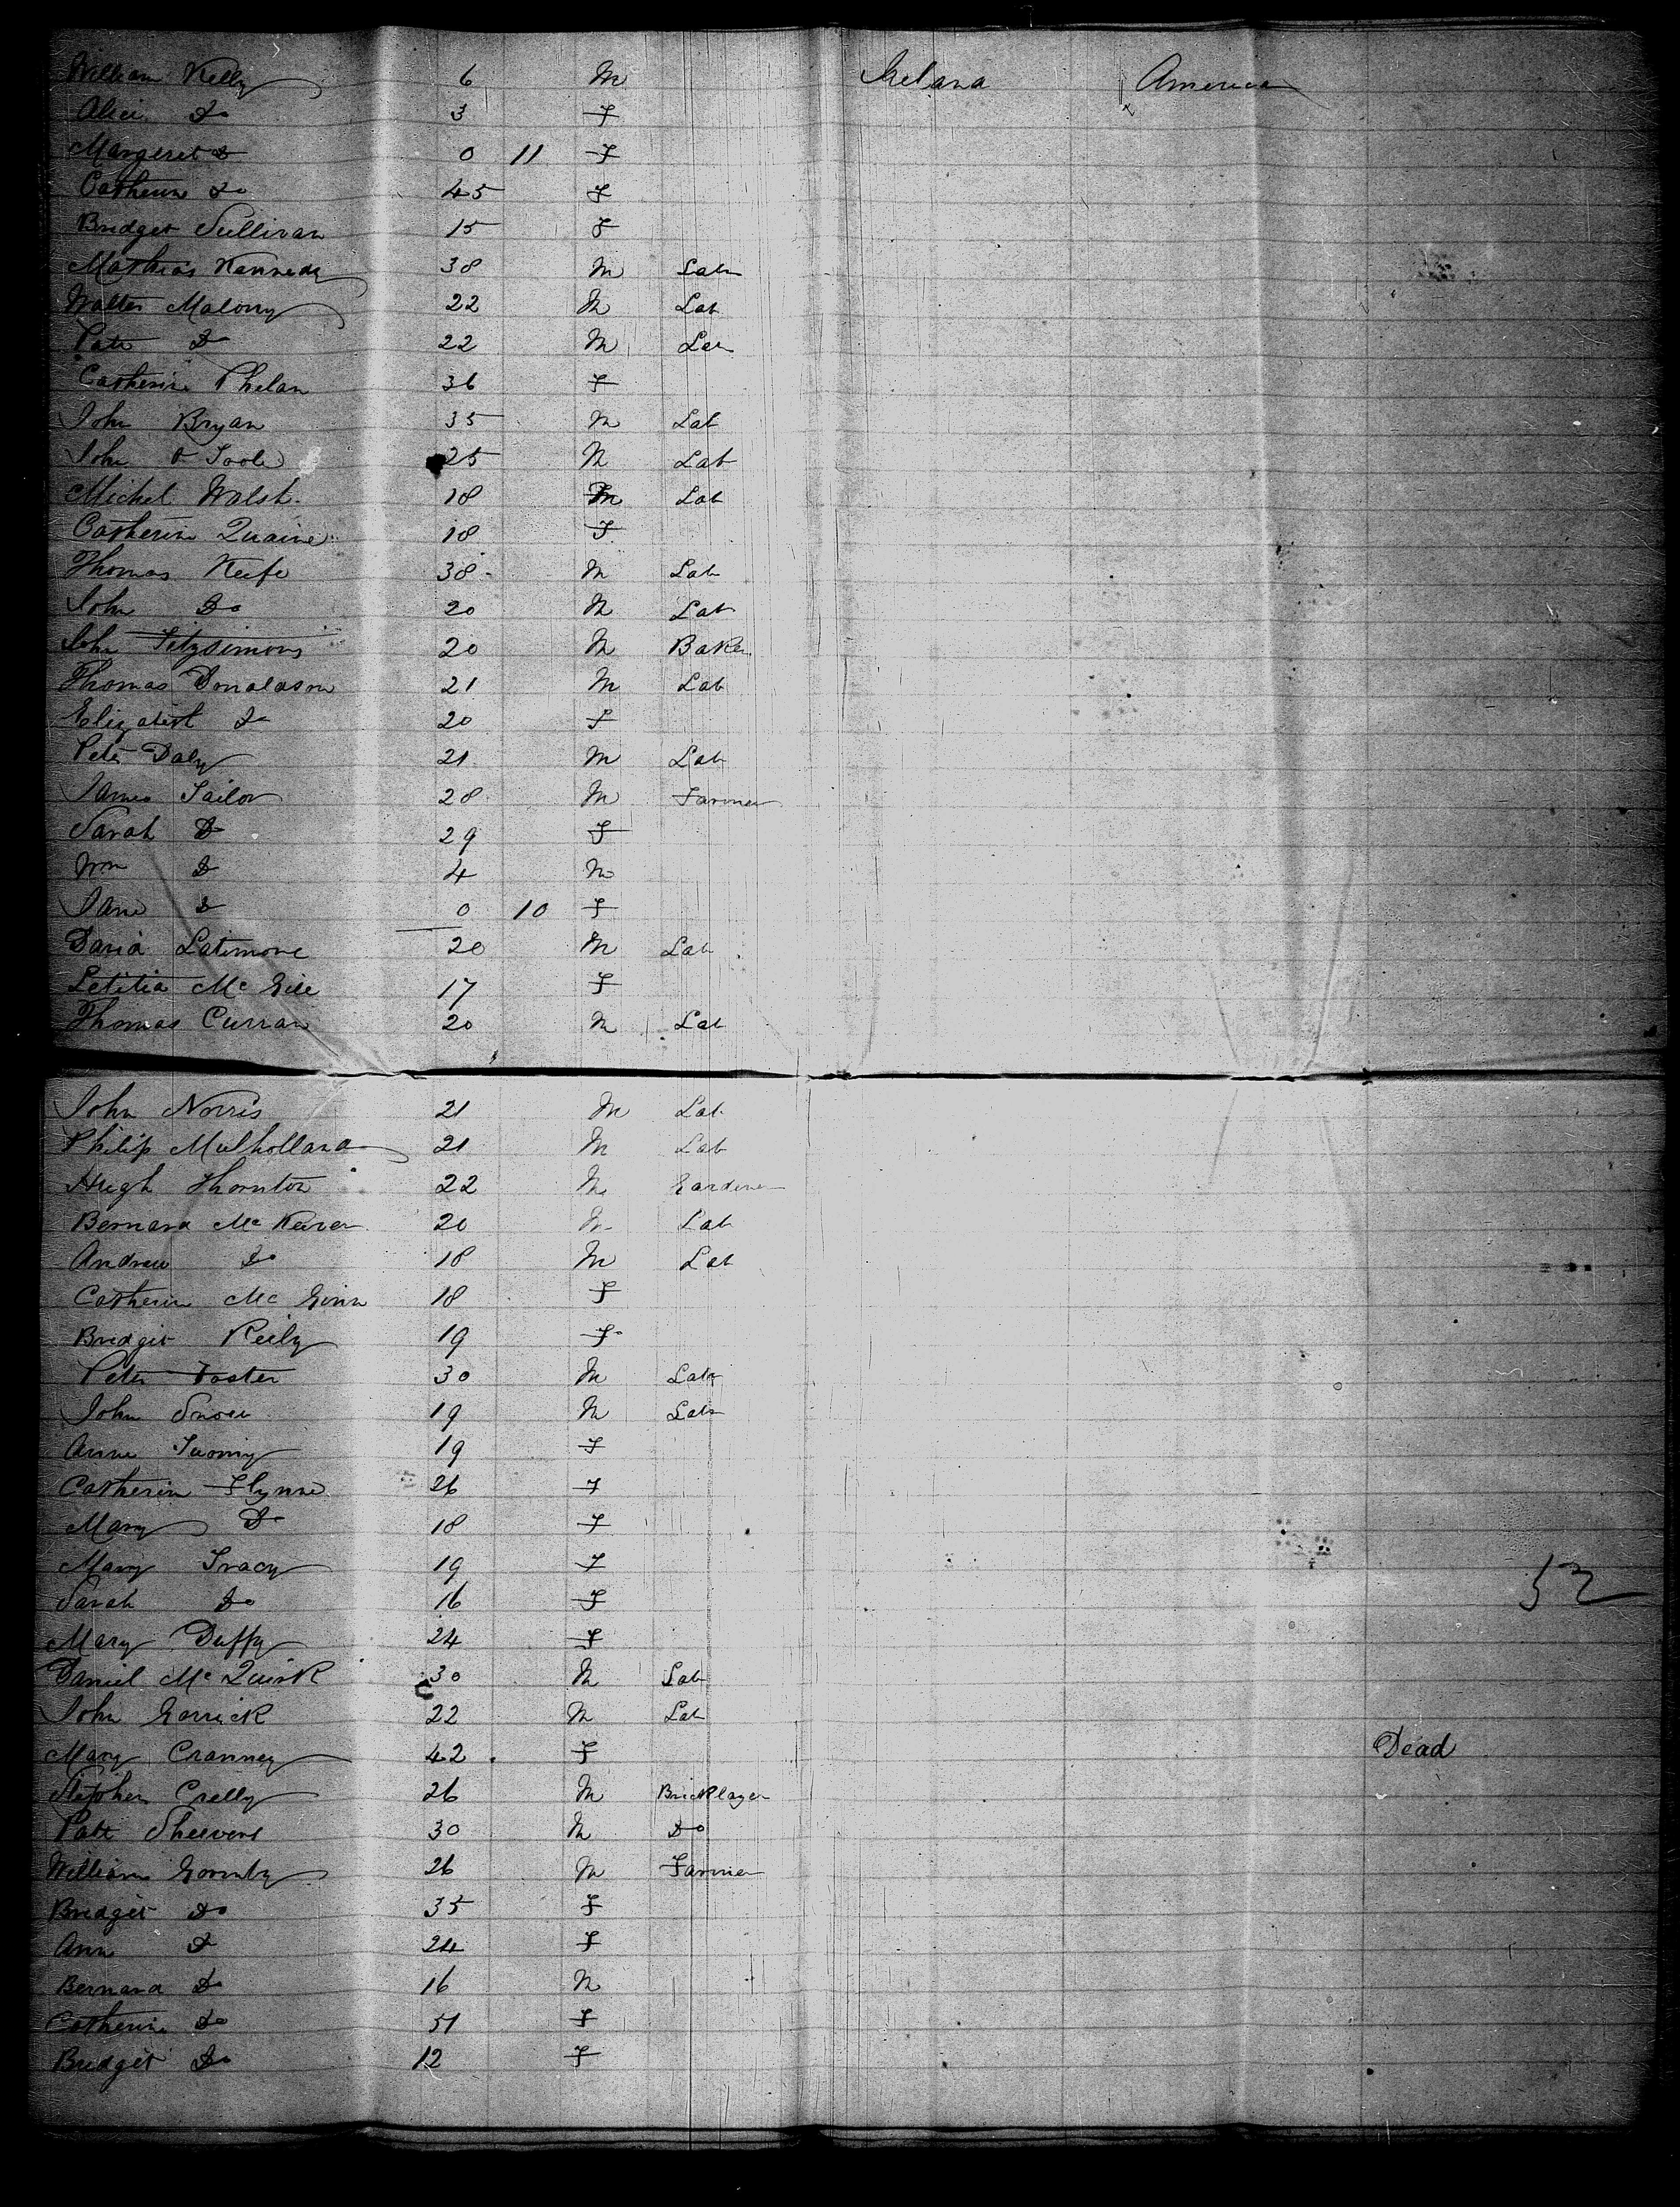 William Kelly 6 M Ireland America
Alice Do 3 F
Margeret Do 0 11 F
Catherine Do 45 F
Bridget Sullivan 15 F
Mathias Kennedy 38 M Lab
Walter Malony 22 M Lab
Patt Do 22 M Lab
Catherine Phelan 36 F
John Bryan 35 M Lab
John O Toole 25 M Lab
Michel Walsh 18 M Lab
Catherin Quaine 18 F
Thomas Keefe 38 M Lab
John Do 20 M Lab
John Fitzsimons 20 M Baker
Thomas Donaldson 21 M Lab
Elizabeth Do 20 F
Peter Daly 21 M Lab
James Tailor 28 M Farmer
Sarah Do 29 F
Wm Do 4 M
Jane Do 0 10 F
David Latimore 20 M Lab
Letitia Mc Gill 17 F
Thomas Curran 20 M Lab
John Norris 21 M Lab
Philip Mulholland 21 M Lab
Hugh Thornton 22 M Gardener
Bernard Mc 20 M Lab
Andrew Do 18 M Lab
Catherin Mc Ginn 18 F
Bridget Reily 19 F
Peter Foster 30 M Lab
John 19 M Lab
Anne Tuomy 19 F
Catherin Flynne 26 F
Mary Do 18 F
Mary Tracy 19 F
52
Sarah Do 16 F
Mary Duffy 24 F
Daniel Mc Quirk 30 M Lab
John Garrick 22 M Lab
Mary Cranney 42 F Dead
Stephen Crelly 26 M Bricklayer
Patt 30 M Do
William Gormly 26 M Farmer
Bridget Do 35 F
Ann Do 24 F
Bernard Do 16 M
Catherine Do 51 F
Bridget Do 12 F